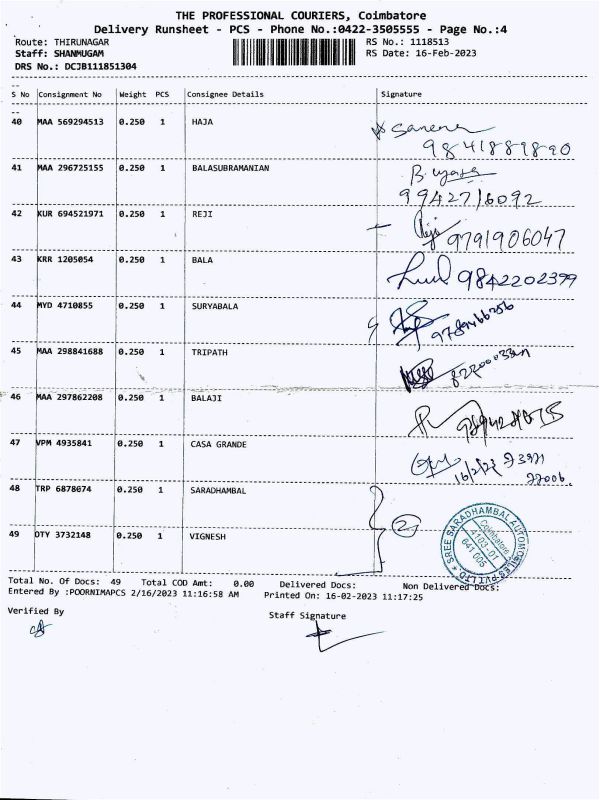 THE PROFESSIONAL COURIERS, Coimbatore
Delivery Runsheet - PCS - Phone No.:0422-3505555 - Page No.:4
Route: THIRUNAGAR RS No.: 1118513
Staff: SHANMUGAM RS Date: 16-Feb-2023
DRS No.: DCJB111851304
S No Consignment No Weight PCS Consignee Details Signature
40 MAA 569294513 0.250 1 HAJA
9841889890
41 MAA 296725155 0.250 1 BALASUBRAMANIAN
9942716092
42 KUR 694521971 0.250 1 REJI
9791906047
43 KRR 1205054 0.250 1 BALA 9842202399
44 MYD 4710855 0.250 1 SURYABALA
45 MAA 298841688 0.250 1 TRIPATH
46 MAA 297862208 0.250 1 BALAJI
47 VPM 4935841 0.250 1 CASA GRANDE
16/2/23
48 TRP 6878074 0.250 1 SARADHAMBAL
2
49 OTY 3732148 0.250 1 VIGNESH
SREE SARADHAMBAL AUTOMOBILES PVT LTD
Coimbatore
4103-01
641 005
Total No. Of Docs: 49 Total COD Amt: 0.00 Delivered Docs: Non Delivered Docs:
Entered By :POORNIMAPCS 2/16/2023 11:16:58 AM Printed On: 16-02-2023 11:17:25
Verified By Staff Signature